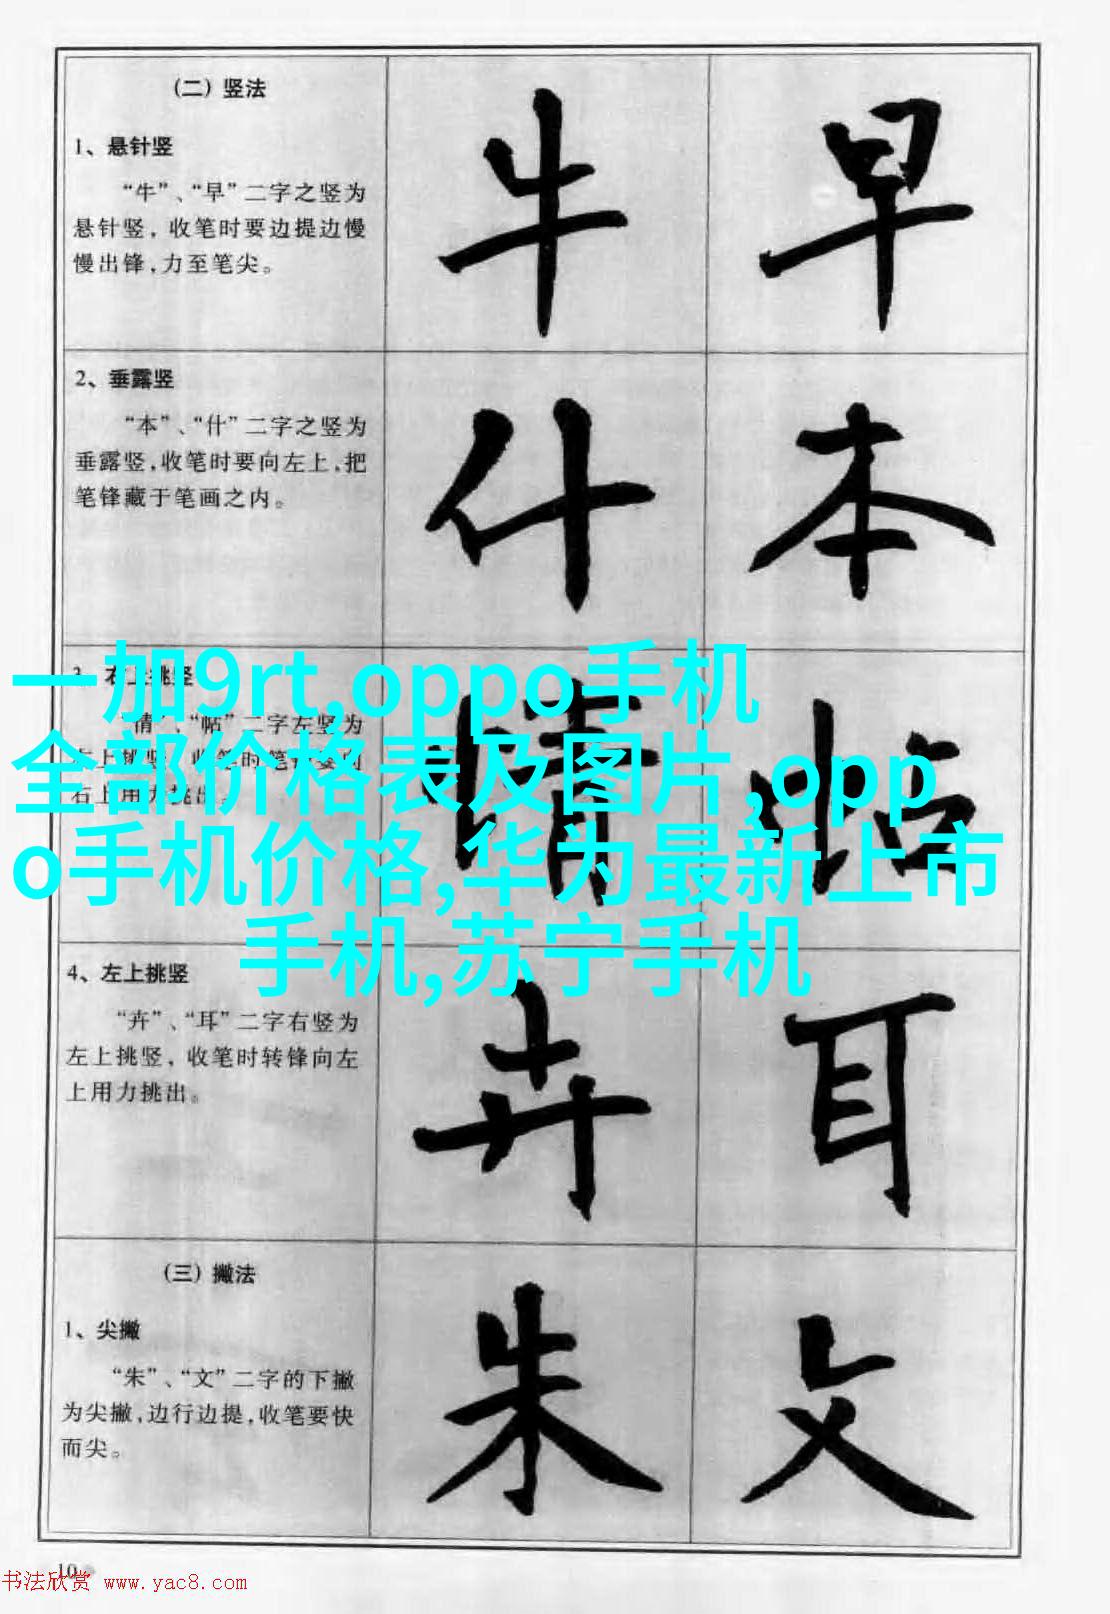 （二）竖法
1、悬针竖
“牛”、“早”二字之竖为
悬针竖，收笔时要边提边慢
慢出锋，力至笔尖。
牛 早
2、垂露竖
“本”、“什”二字之竖为
垂露竖，收笔时要向左上，把
笔锋藏于笔画之内。
什 本
3、右上挑竖
“情”、“帖”二字左竖为
右上用力挑出。
情 帖
一加9rt,oppo手机
全部价格表及图片,opp
o手机价格,华为最新上市
手机,苏宁手机
4、左上挑竖
“卉”、“耳”二字右竖为
左上挑竖，收笔时转锋向左
上用力挑出。
卉 耳
（三）撇法
1、尖撇
“朱”、“文”二字的下撇
为尖撇，边行边提，收笔要快
而尖。
朱 文
10
书法欣赏 www.yac8.com